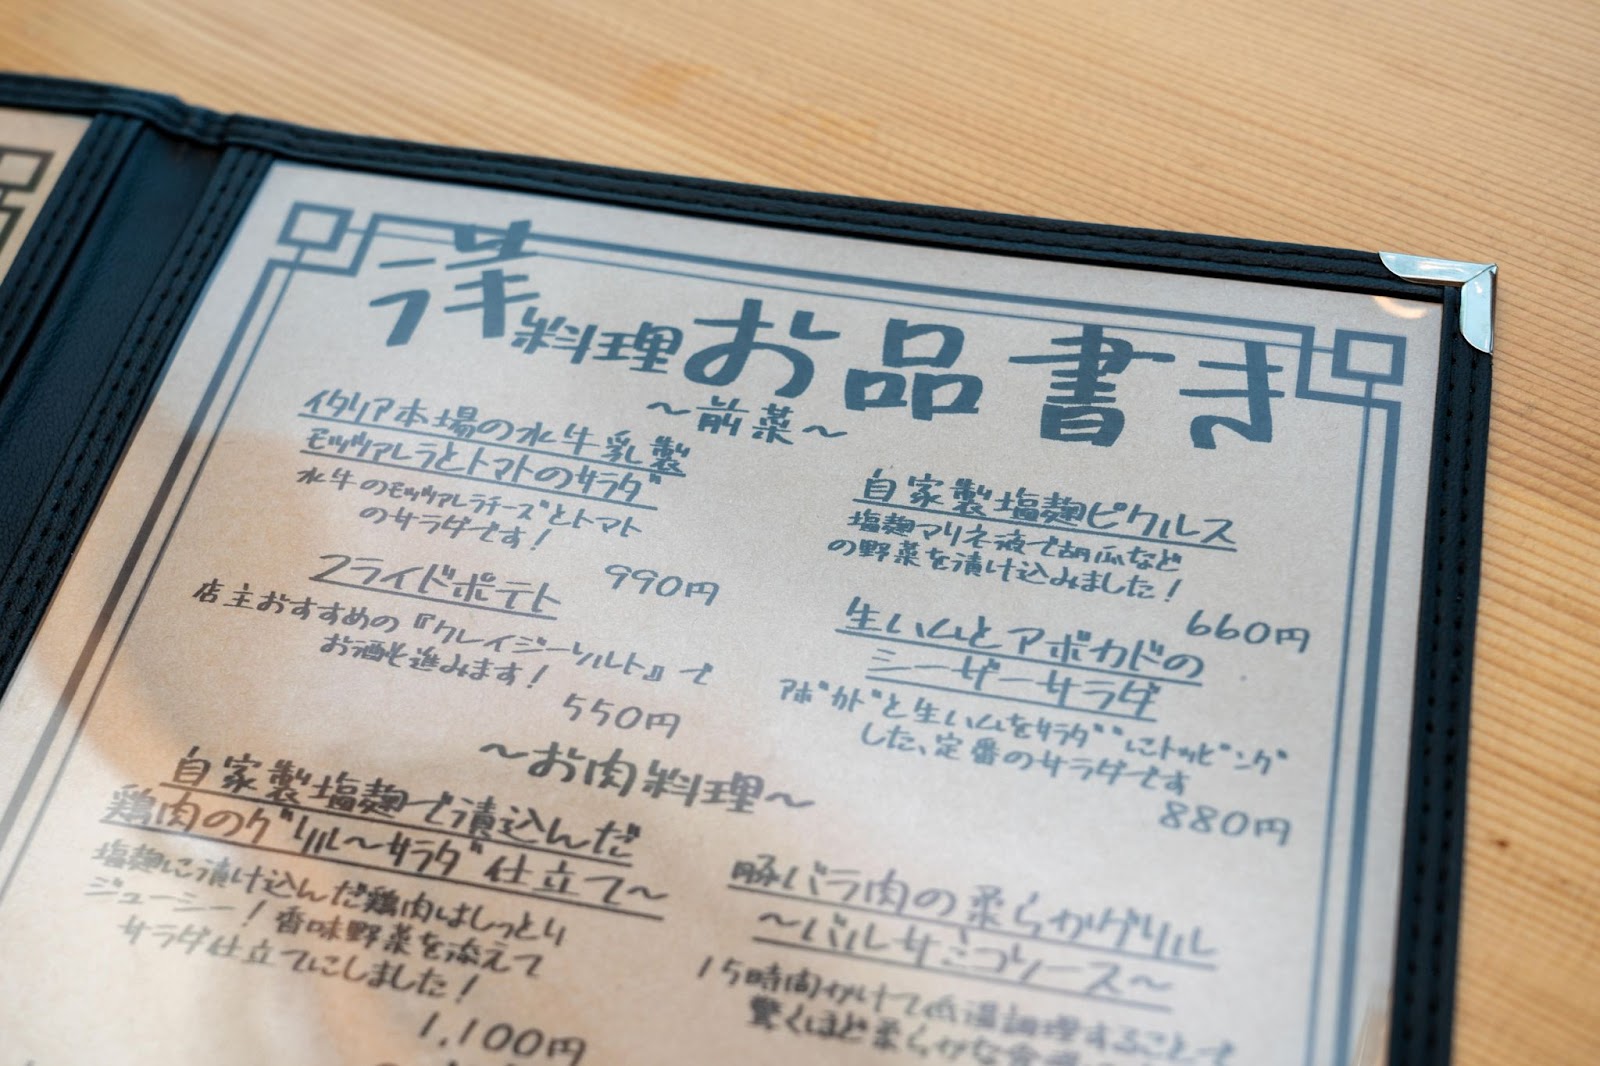 浅料理お品書き
～前菜～
イタリア本場の水牛乳製
モッツアレラとトマトのサラダ
水牛のモッツアレラチーズとトマト
のサラダです！
990円
フライドポテト
店主おすすめの『クレイジーソルト』で
お酒も進みます！
550円
自家製塩麹ピクルス
塩麹マリネ液で胡瓜など
の野菜を漬け込みました！
660円
生ハムとアボカドの
シーザーサラダ
アボカドと生ハムをサラダにトッピング
した、定番のサラダです
880円
～お肉料理～
自家製塩麹で漬込んだ
鶏肉のグリル～サラダ仕立て～
塩麹に漬け込んだ鶏肉はしっとり
ジューシー！香味野菜を添えて
サラダ仕立てにしました！
1,100円
豚バラ肉の柔らかグリル
～バルサミコソース～
15時間かけて低温調理することで
驚くほど柔らかな食